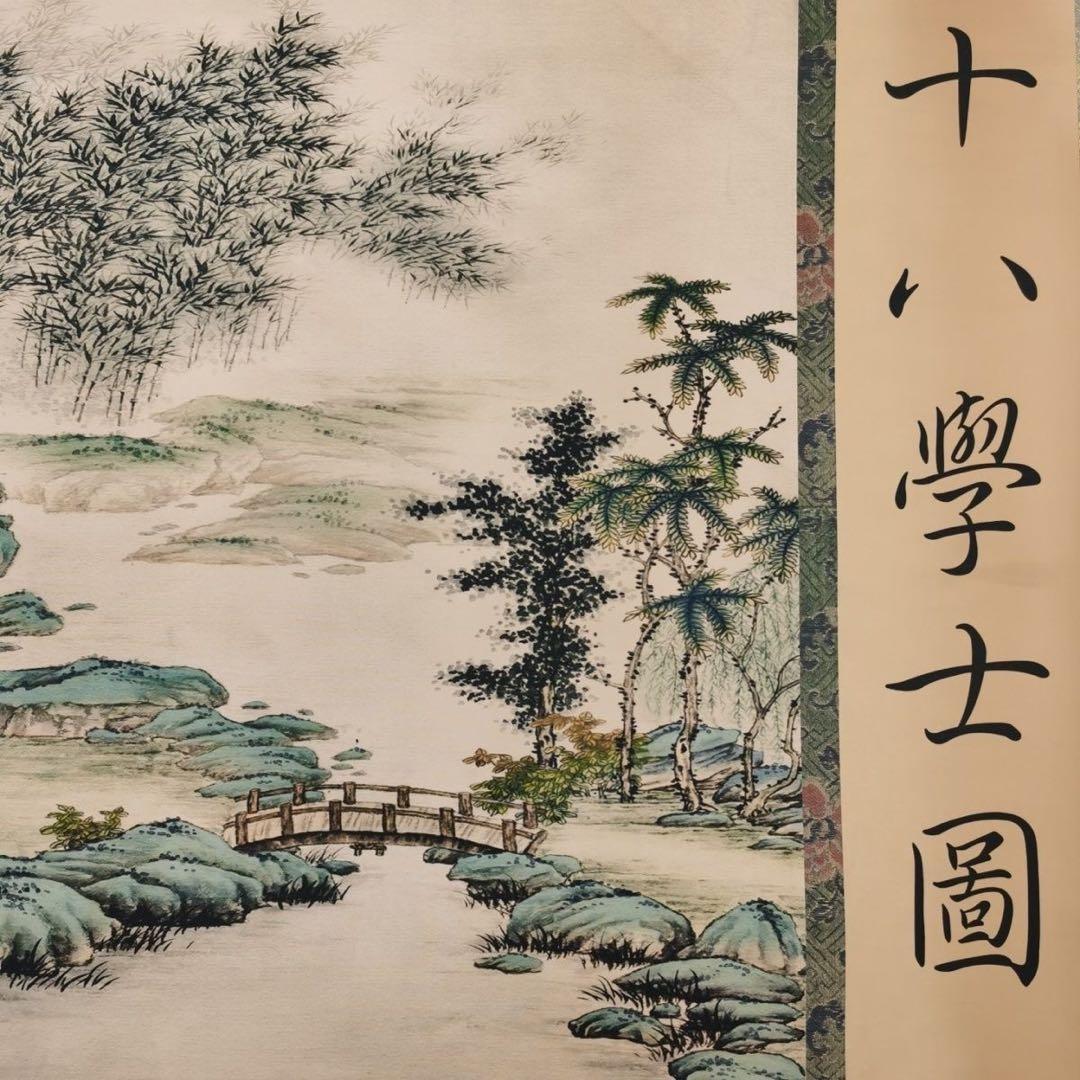 十八學士圖